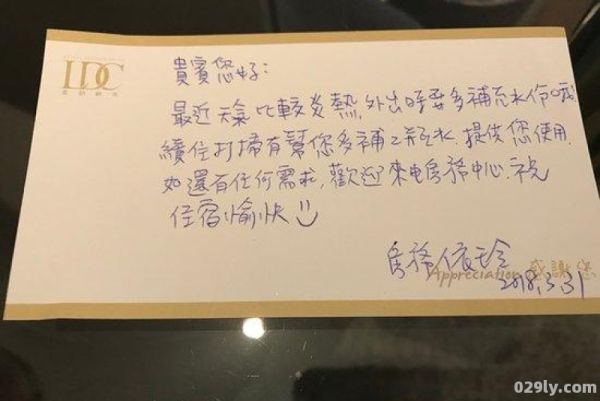 LDC
貴賓您好:
最近天氣比較炎熱,外出時要多補充水份哦
續住打掃有幫您多補2瓶水.提供您使用.
如還有任何需求,歡迎來电房務中心.祝
住宿愉快
房務 依玲
Appreciation 感謝您
2018.3.31
029ly.com